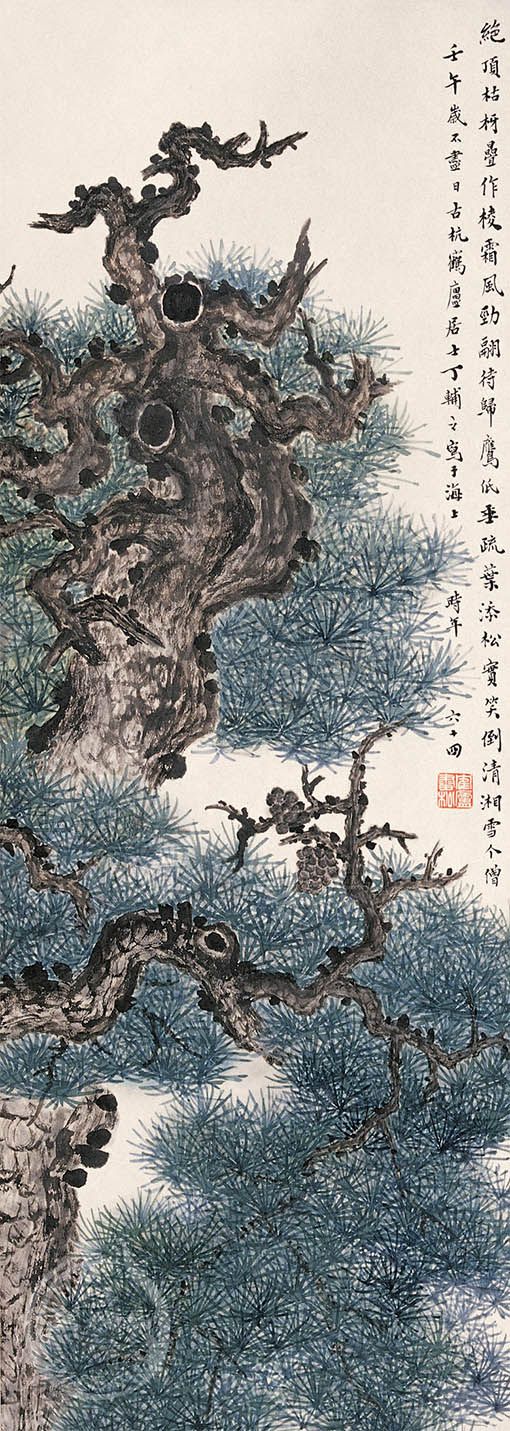 絕頂枯枒疊作棱霜風勁翮待歸鷹低垂疏葉添松實笑倒清湘雪个僧
壬午歲不盡日古杭鶴廬居士丁輔之寫于海上
時年六十四